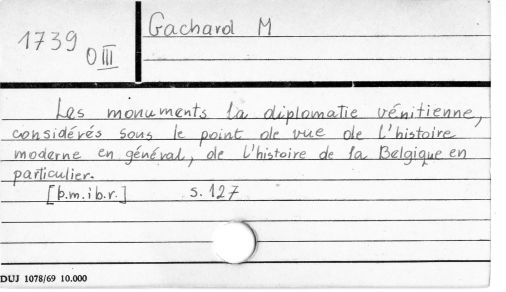 Gachard M
1739
O III
Les monuments la diplomatie vénitienne,
considérés sous le point de vue de l'histoire
moderne en général, de l'histoire de la Belgique en
particulier.
[b.m.i b.r.] s. 127
DUJ 1078/69 10.000